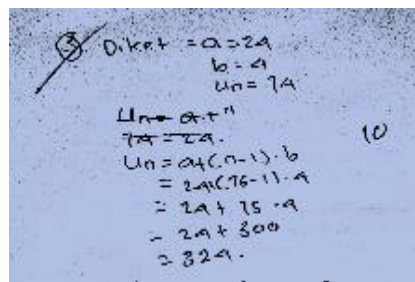 3. Diket = a = 24
b = 4
Un = 74
Un = a.r^n
74 = 24.
10
Un = a+(n-1).b
= 24(76-1).4
= 24 + 75 .4
= 24 + 300
= 324.